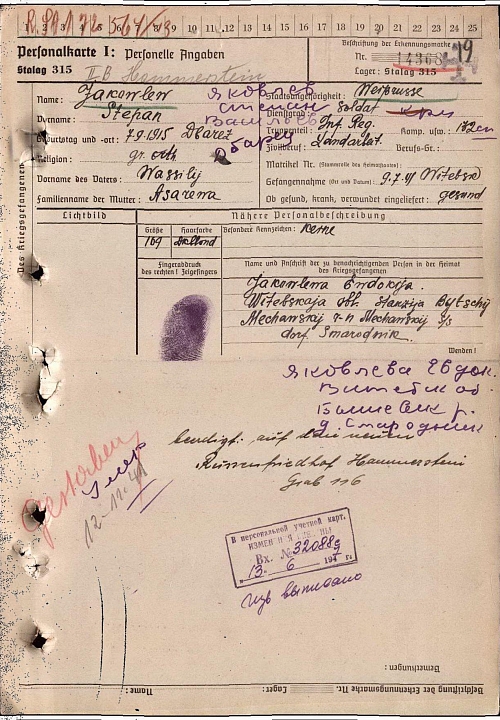 1 2 3 4 5 6 7 8 9 10 11 12 13 14 15 16 17 18 19 20 21 22 23 24 25
Personalkarte I: Personelle Angaben
Beschriftung der Erkennungsmarke
Stalag 315
II B Hammerstein
Nr. 14368
Lager: Stalag 315
Name: Jakowlew
Яковлев
Staatsangehörigkeit: Weisrusse
Vorname: Stepan
Степан
Dienstgrad: Soldat
Василев
Truppenteil: Inf. Reg. Komp. usw.: 182
Geburtstag und -ort: 7.9.1915 Obarez
Обарец
Zivilberuf: Landarbeit. Berufs-Gr.:
Religion: gr. orth
Matrikel Nr. (Stammrolle des Heimatstaates):
Vorname des Vaters: Wassilij
Gefangennahme (Ort und Datum): 9.7.41 Witebsk
Familienname der Mutter: Asarewa
Ob gesund, krank, verwundet eingeliefert: gesund
Des Kriegsgefangenen
Lichtbild
Nähere Personalbeschreibung
Größe Haarfarbe Besondere Kennzeichen: Keine
169 Dklblond
Fingerabdruck
des rechten! Zeigefingers
Name und Anschrift der zu benachrichtigenden Person in der Heimat
des Kriegsgefangenen
Jakowlewa Ewdokija.
Witebskaja obl. Stanzija Bytschij
Mechanskij r-n Mechanskij s/s
dorf. Smarodnik.
Wenden!
Яковлева Евдок.
Витебск об.
р.
д. Стародник
beerdigt: auf dem neuen
Russenfriedhof Hammerstein
Grab 116
Gestorben
умер
12.11.41
В персональной учетной карт.
ИЗМЕНЕНИЯ
Вх. № 32088
13 6 194 г.
выписано
Bemerkungen:
Beschriftung der Erkennungsmarke Nr. Lager: Name: